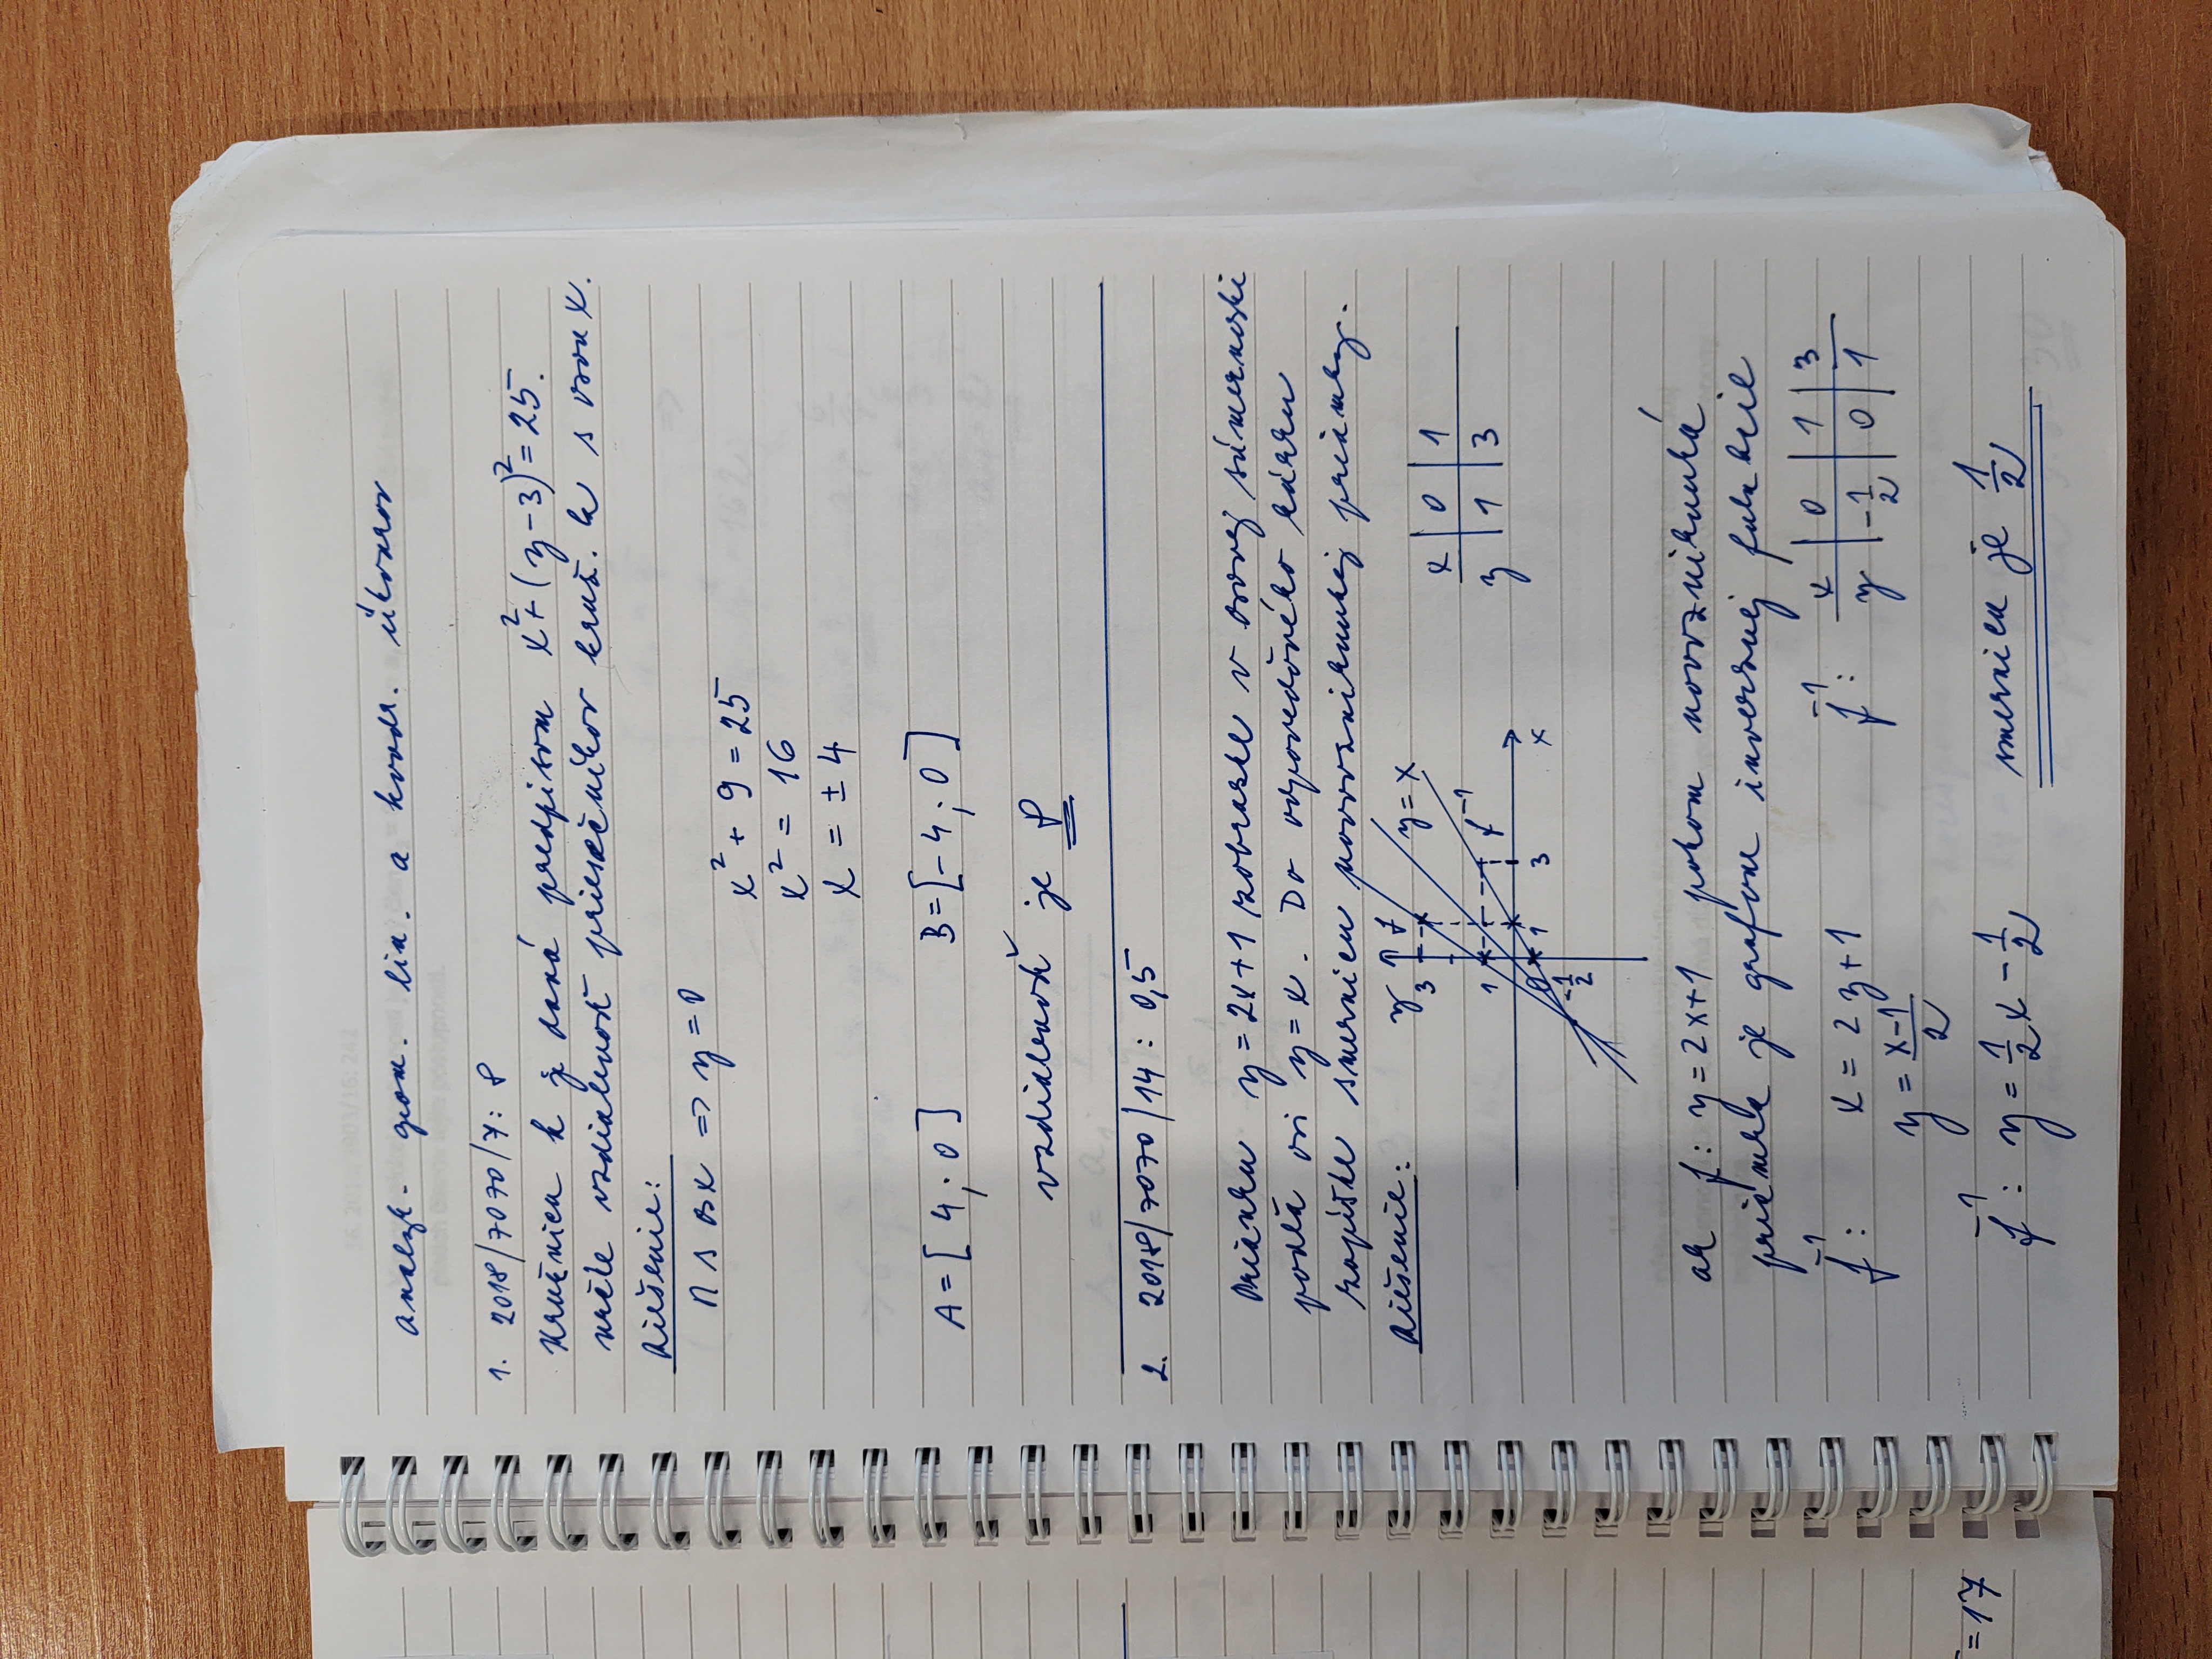 analyt. geom. lin. a kvadr. útvarov
1. 2018/7070/7: 8
Kružnica k je daná predpisom x² + (y - 3)² = 25.
Určte vzdialenosť priesečníkov kruž. k s osou x.
Riešenie:
∩ s os x => y = 0
x² + 9 = 25
x² = 16
x = ± 4
A = [4; 0] B = [-4; 0]
vzdialenosť je 8
2. 2018/7070/14: 0,5
Priamku y = 2x+1 zobrazte v osovej súmernosti
podľa osi y = x. Do odpoveďového hárku
napíšte smernicu novovzniknutej priamky.
Riešenie:
y 3 f y = x
x 0 1
y 1 3
1 f⁻¹
0 1 3 x
-1/2
ak f: y = 2x+1 potom novovzniknutá
priamka je grafom inverznej funkcie
f⁻¹: x = 2y + 1
f⁻¹: x 0 1 3
y -1/2 0 1
y = (x-1)/2
f⁻¹: y = 1/2 x - 1/2 smernica je 1/2
= 17